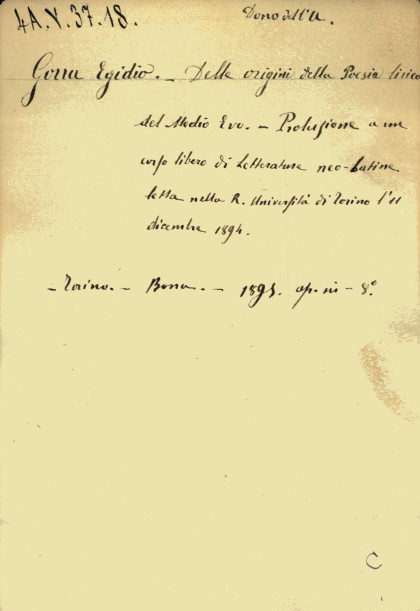 4A.Y.37.18.
Dono dell'A.
Gorra Egidio. - Delle origini della Poesia lirica
del Medio Evo. - Prolusione a un
corso libero di Letterature neo-latine
letta nella R. Università di Torino l'11
dicembre 1894.
- Torino. - Bona. - 1895. op. in - 8.°
C